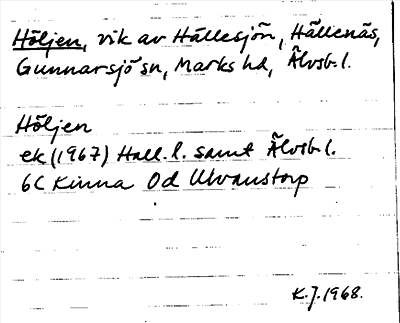 Höljen, vik av Hällesjön, Hällenäs,
Gunnarsjö sn, Marks hd, Älvsb. l.
Höljen
ek (1967) Hall. l. samt Älvsb. l.
6C Kinna 0d Ulvanstorp
K.J. 1968.